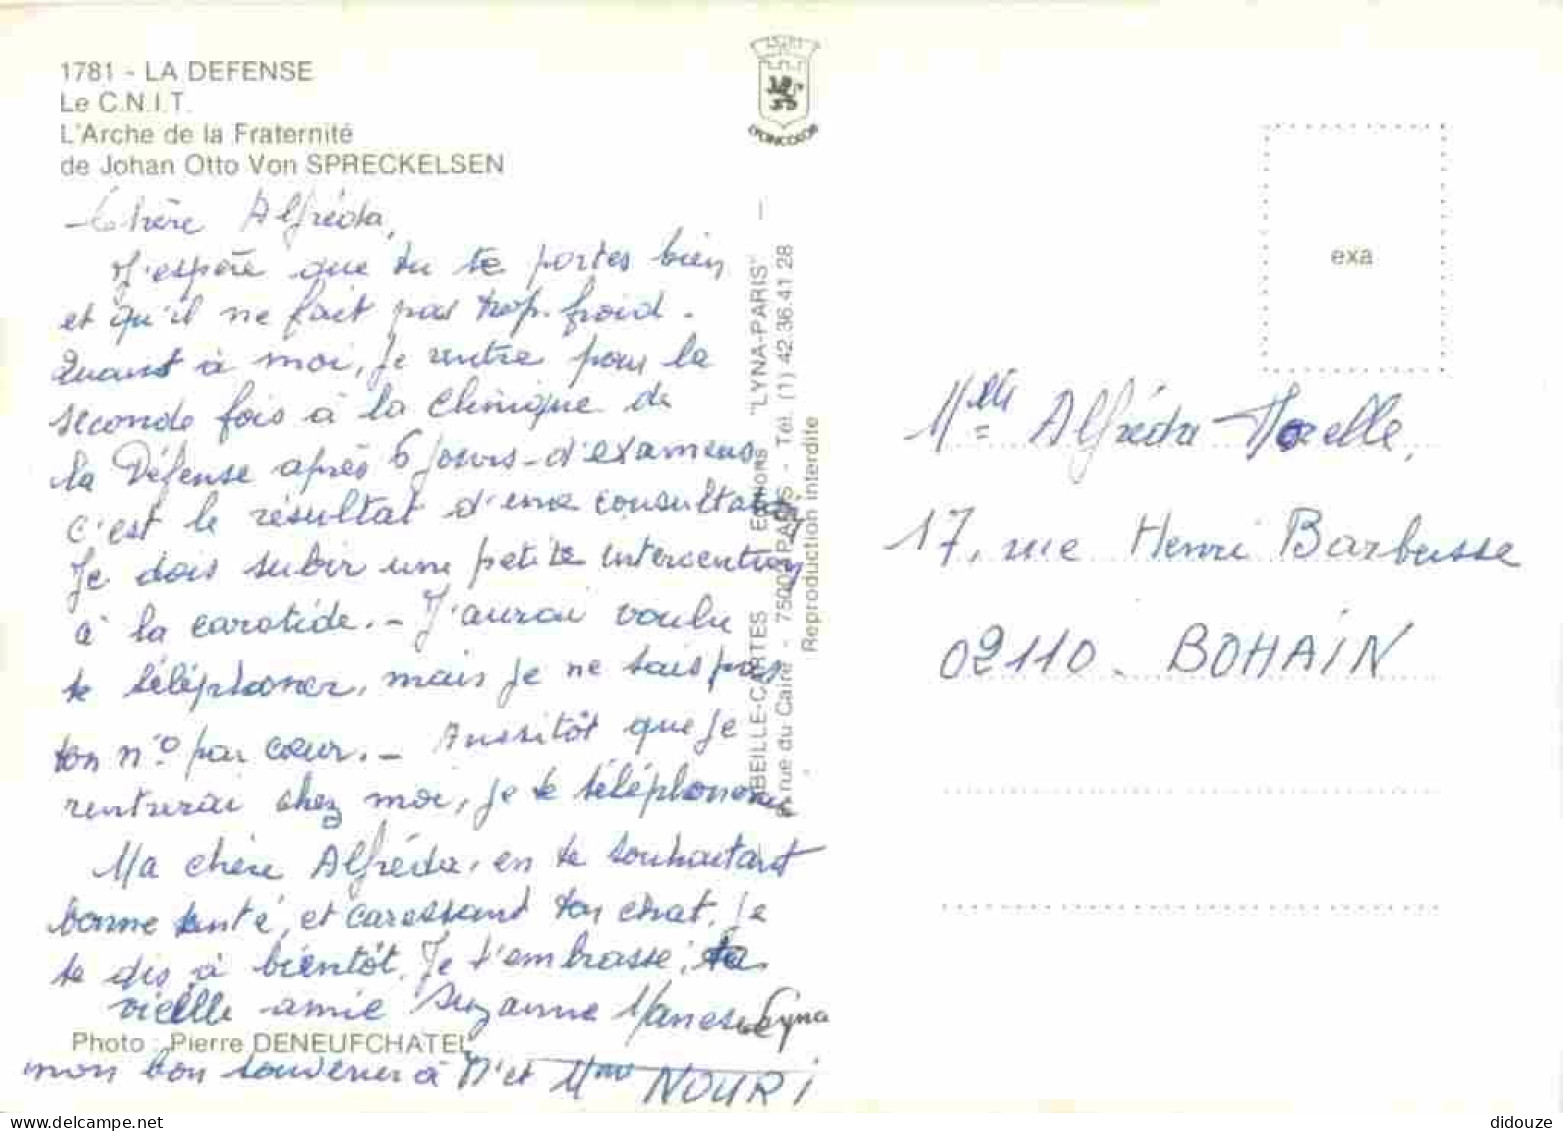 1781 - LA DEFENSE
Le C.N.I.T.
L'Arche de la Fraternité
de Johan Otto Von SPRECKELSEN
Chère Alfréda,
J'espère que tu te portes bien
et qu'il ne fait pas trop froid.
Quant à moi, je rentre pour la
seconde fois à la Clinique de
la Défense après 6 jours d'examens
c'est le résultat d'une consultation
Je dois subir une petite intervention
à la carotide. - J'aurai voulu
te téléphoner, mais je ne sais pas
ton n° par cœur. - Aussitôt que je
rentrerai chez moi, je te téléphonerai
Ma chère Alfréda, en te souhaitant
bonne santé, et caressant ton chat, je
te dis à bientôt, Je t'embrasse, ta
vieille amie Suzanne
Photo : Pierre DENEUFCHATEL
mon bon souvenir à M. et Mme NOURI
LYONCOLOR
ABEILLE-CARTES EDITIONS "LYNA-PARIS"
rue du Caire - 75002 PARIS - Tél. (1) 42.36.41.28
Reproduction interdite
exa
Mlle Alfréda
17, rue Henri Barbusse
02110 - BOHAIN
didouze